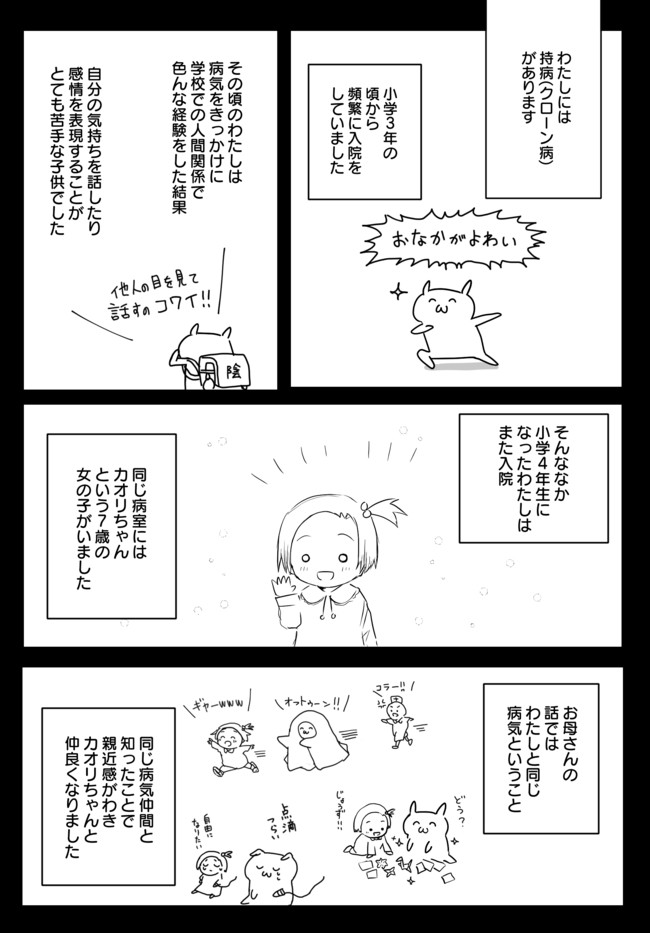 わたしには
持病(クローン病)
があります
小学3年の
頃から
頻繁に入院を
していました
おなかがよわい
その頃のわたしは
病気をきっかけに
学校での人間関係で
色んな経験をした結果
自分の気持ちを話したり
感情を表現することが
とても苦手な子供でした
他人の目を見て
話すのコワイ!!
陰
そんななか
小学4年生に
なったわたしは
また入院
同じ病室には
カオリちゃん
という7歳の
女の子がいました
お母さんの
話では
わたしと同じ
病気ということ
コラー!!
オットゥーン!!
ギャーwww
どう?
じょうず!!
点滴
つらい
自由に
なりたい
同じ病気仲間と
知ったことで
親近感がわき
カオリちゃんと
仲良くなりました